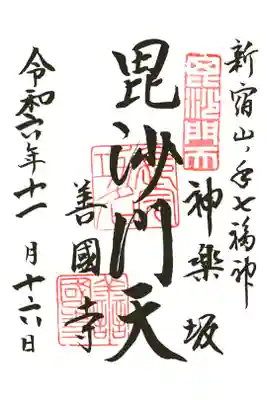 新宿山ノ手七福神
毘沙門天
神楽坂
毘沙門天
善國寺
善國寺
令和六年十一月十六日